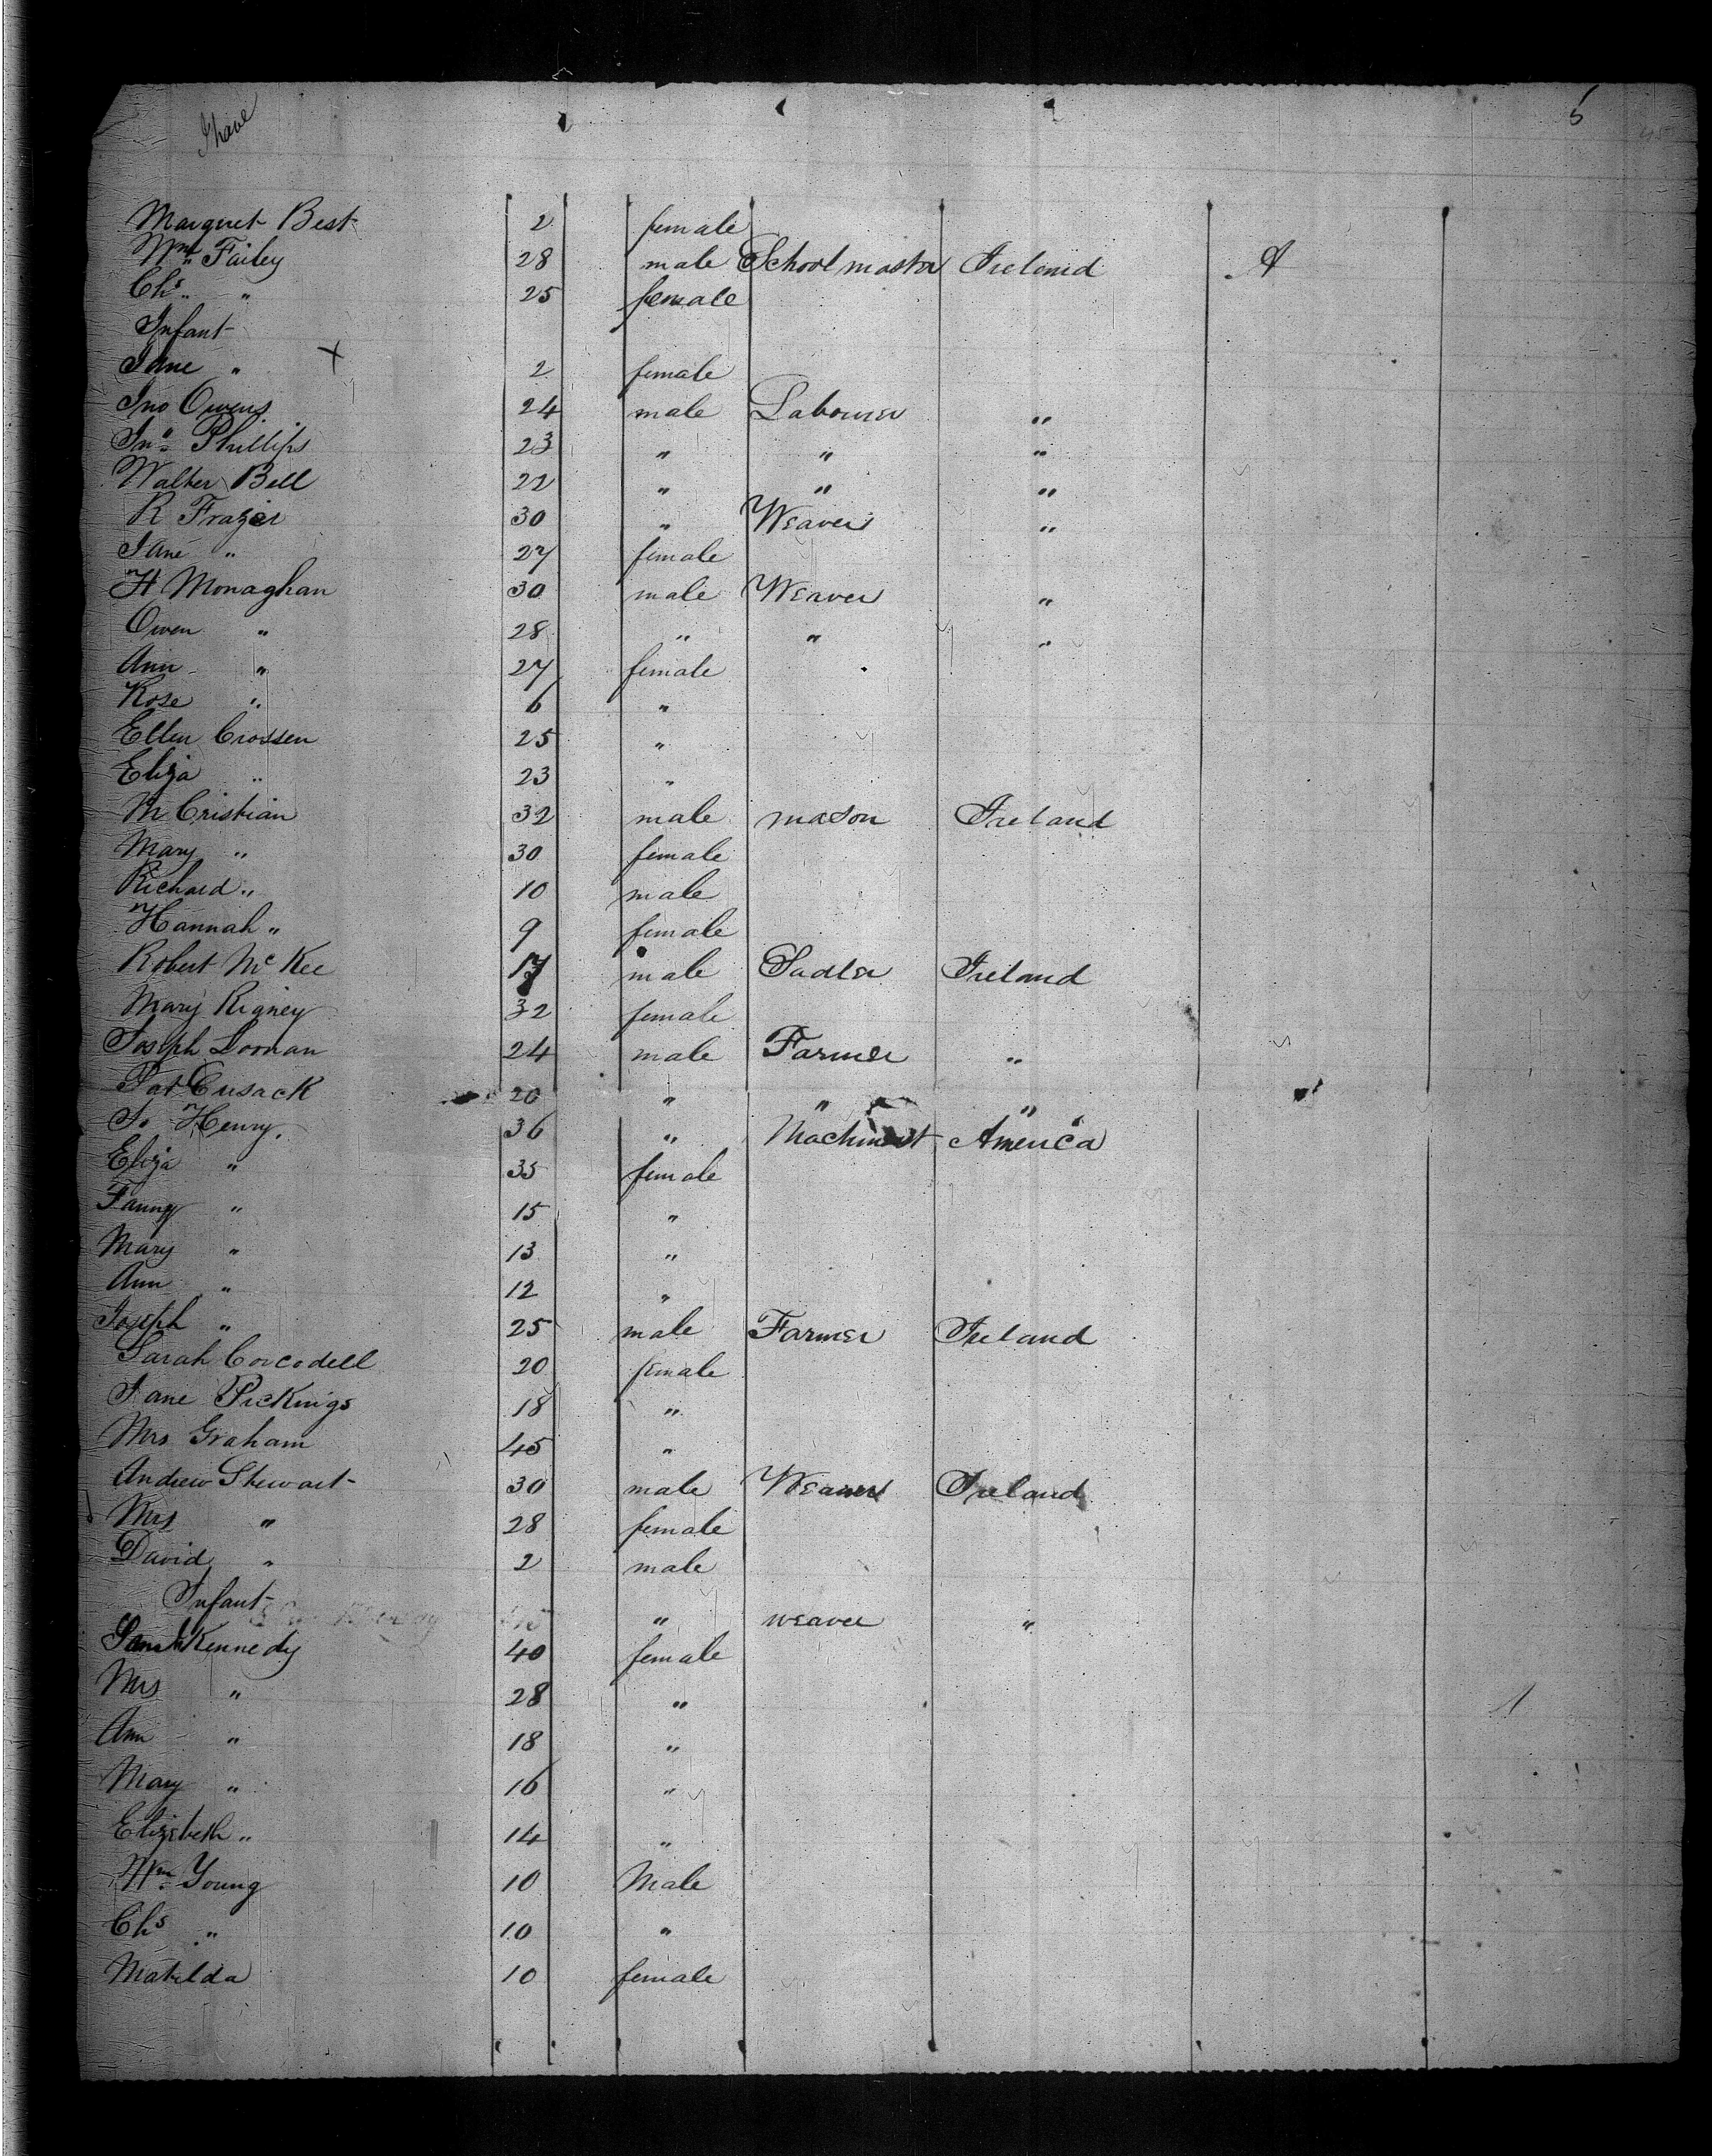 I have
5
45
Margret Best 2 female
Wm Failey 28 male Schoolmaster Ireland A
Chs " 25 female
Infant
Jane " X 2 female
Jno Owens 24 male Labourer "
Jno Phillips 23 " " "
Walter Bell 22 " " "
R Frazer 30 " Weaver "
Jane " 27 female
H Monaghan 30 male Weaver "
Owen " 28 " " "
Ann " 27 female
Rose " 6 "
Ellen Crossen 25 "
Eliza " 23 "
M Cristian 32 male mason Ireland
Mary " 30 female
Richard " 10 male
Hannah " 9 female
Robert McKee 17 male Sadler Ireland
Mary Rigney 32 female
Joseph Loonan 24 male Farmer "
Pat Cusack 20 " " "
Jo Henry. 36 " Machinist America
Eliza " 35 female
Fanny " 15 "
Mary " 13 "
Ann " 12 "
Joseph " 25 male Farmer Ireland
Sarah Corcodell 20 female
Jane Pickings 18 "
Mrs Graham 45 "
Andrew Stewart 30 male Weaver Ireland
Mrs " 28 female
David " 2 male
Infant " weaver "
Kennedy 40 female
Mrs " 28 "
Ann " 18 "
Mary " 16 "
Elizebeth " 14 "
Wm Young 10 Male
Chs " 10 "
Matilda 10 female